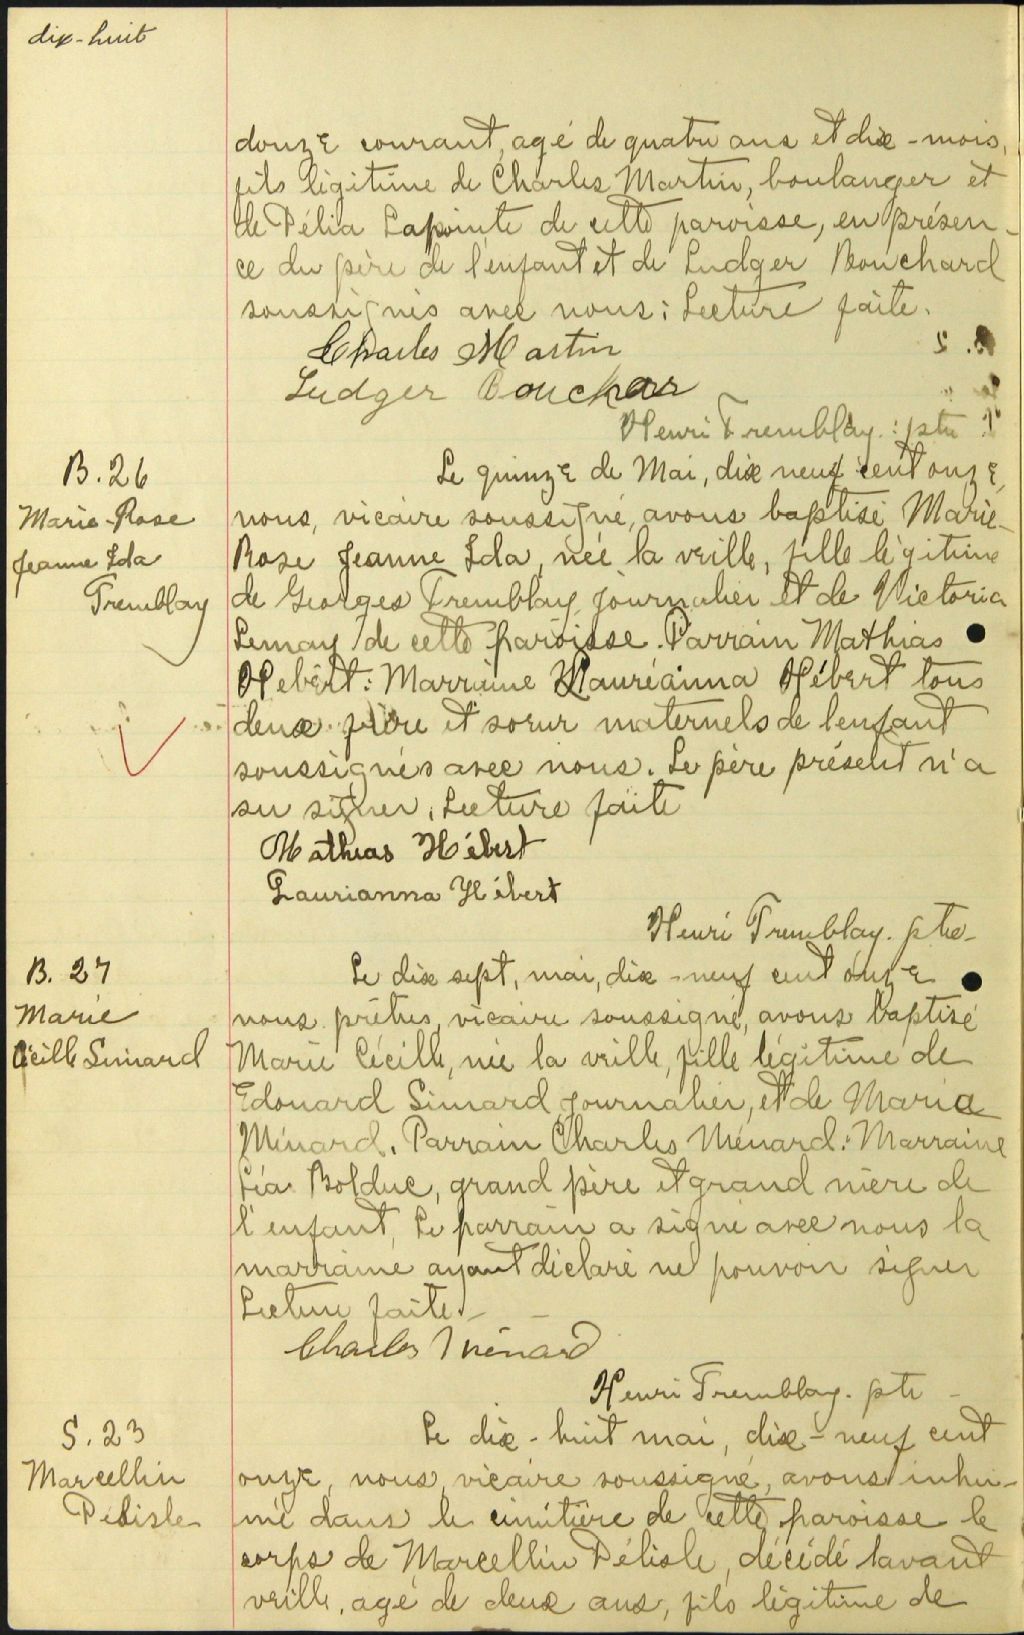 dix-huit
douze courant, agé de quatre ans et dix-mois,
fils légitime de Charles Martin, boulanger et
de Délia Lapointe de cette paroisse, en présen-
ce du père de l'enfant et de Ludger Bouchard
soussignés avec nous; Lecture faite.
Charles Martin
Ludger Bouchar
Henri Tremblay. ptre
B. 26
Marie-Rose
Jeanne Ida
Tremblay
Le quinze de Mai, dix neuf cent onze,
nous, vicaire soussigné, avons baptisé Marie-
Rose Jeanne Ida, née la veille, fille légitime
de Georges Tremblay, journalier et de Victoria
Lemay de cette paroisse. Parrain Mathias
Hebért: Marraine Lauréanna Hébert tous
deux frère et soeur maternels de l'enfant
soussignés avec nous. Le père présent n'a
su signer. Lecture faite
Mathias Hébert
Laurianna Hébert
Henri Tremblay. ptre-
B. 27
Marie
Cécille Simard
Le dix sept, mai, dix-neuf cent onze
nous prêtre, vicaire soussigné, avons baptisé
Marie Cécille, née la veille, fille légitime de
Edouard Simard journalier, et de Maria
Ménard. Parrain Charles Ménard: Marraine
Léa Bolduc, grand père et grand mère de
l'enfant, Le parrain a signé avec nous la
marraine ayant déclaré ne pouvoir signer
Lecture faite.
Charles Ménard
Henri Tremblay. ptr
S. 23
Marcellin
Délisle
Le dix-huit mai, dix-neuf cent
onze, nous, vicaire soussigné, avons inhu-
mé dans le cimitière de cette paroisse le
corps de Marcellin Délisle, décédé lavant
veille, agé de deux ans, fils légitime de